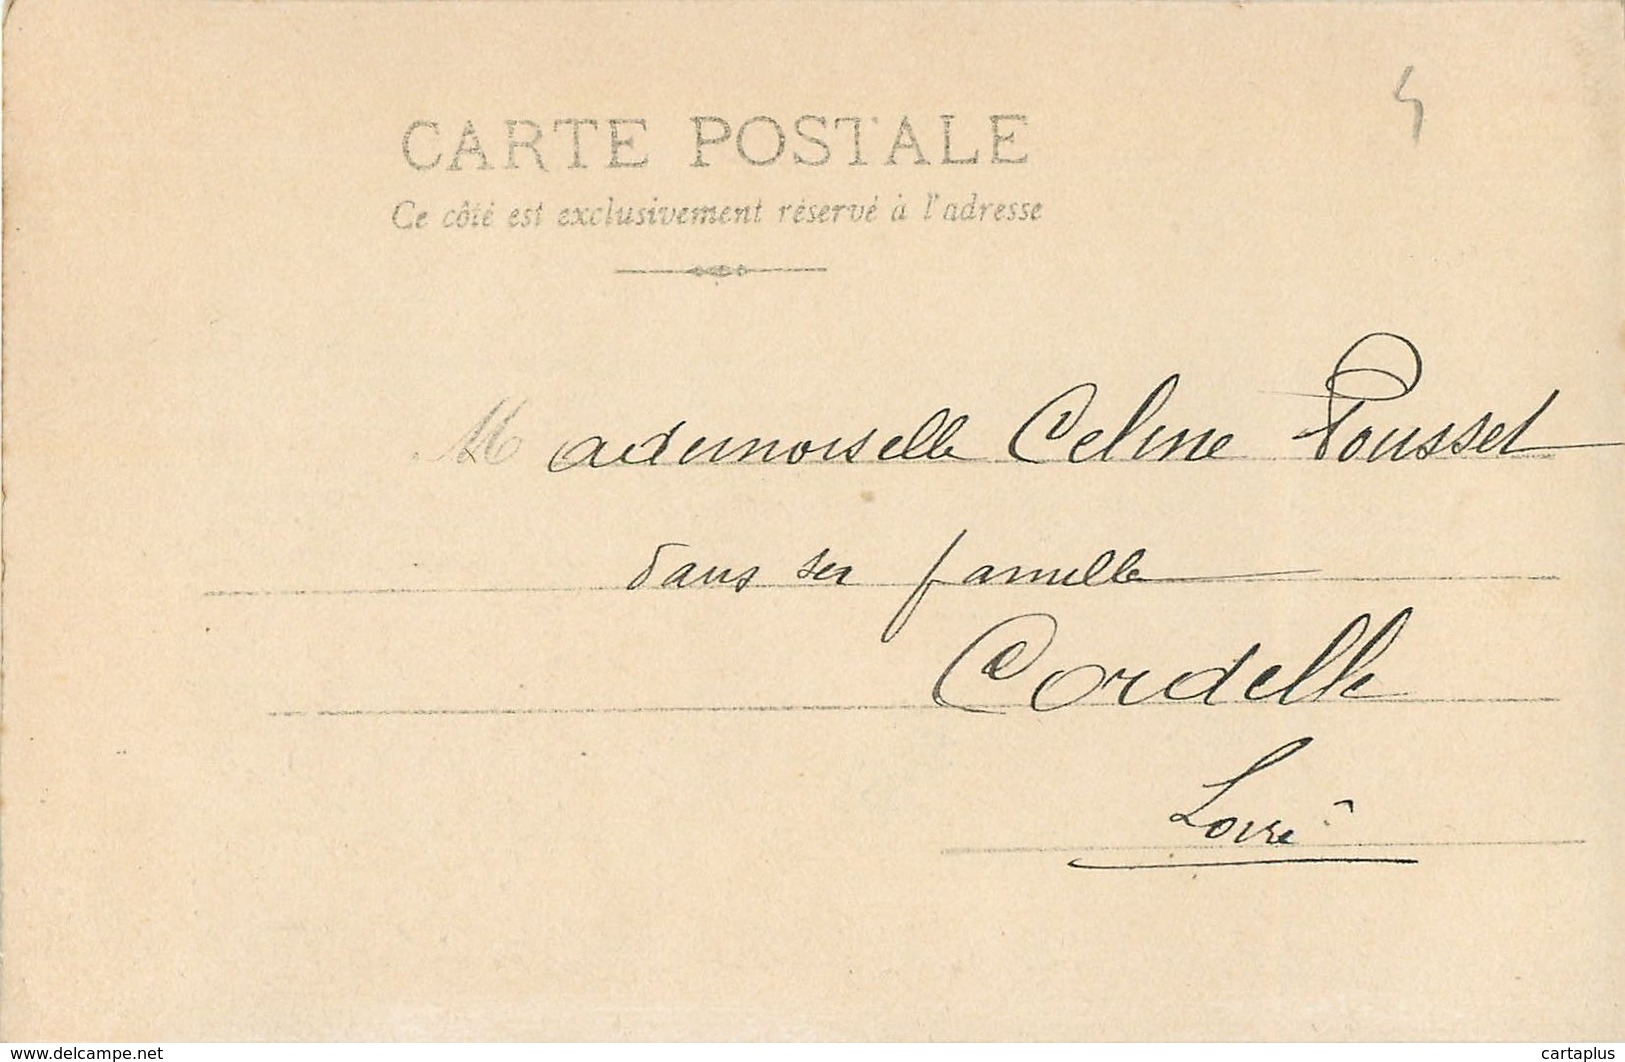 CARTE POSTALE
Ce côté est exclusivement réservé à l'adresse
Mademoiselle Celine Pousset
dans sa famille
Cordelle
Loire
www.delcampe.net
cartaplus